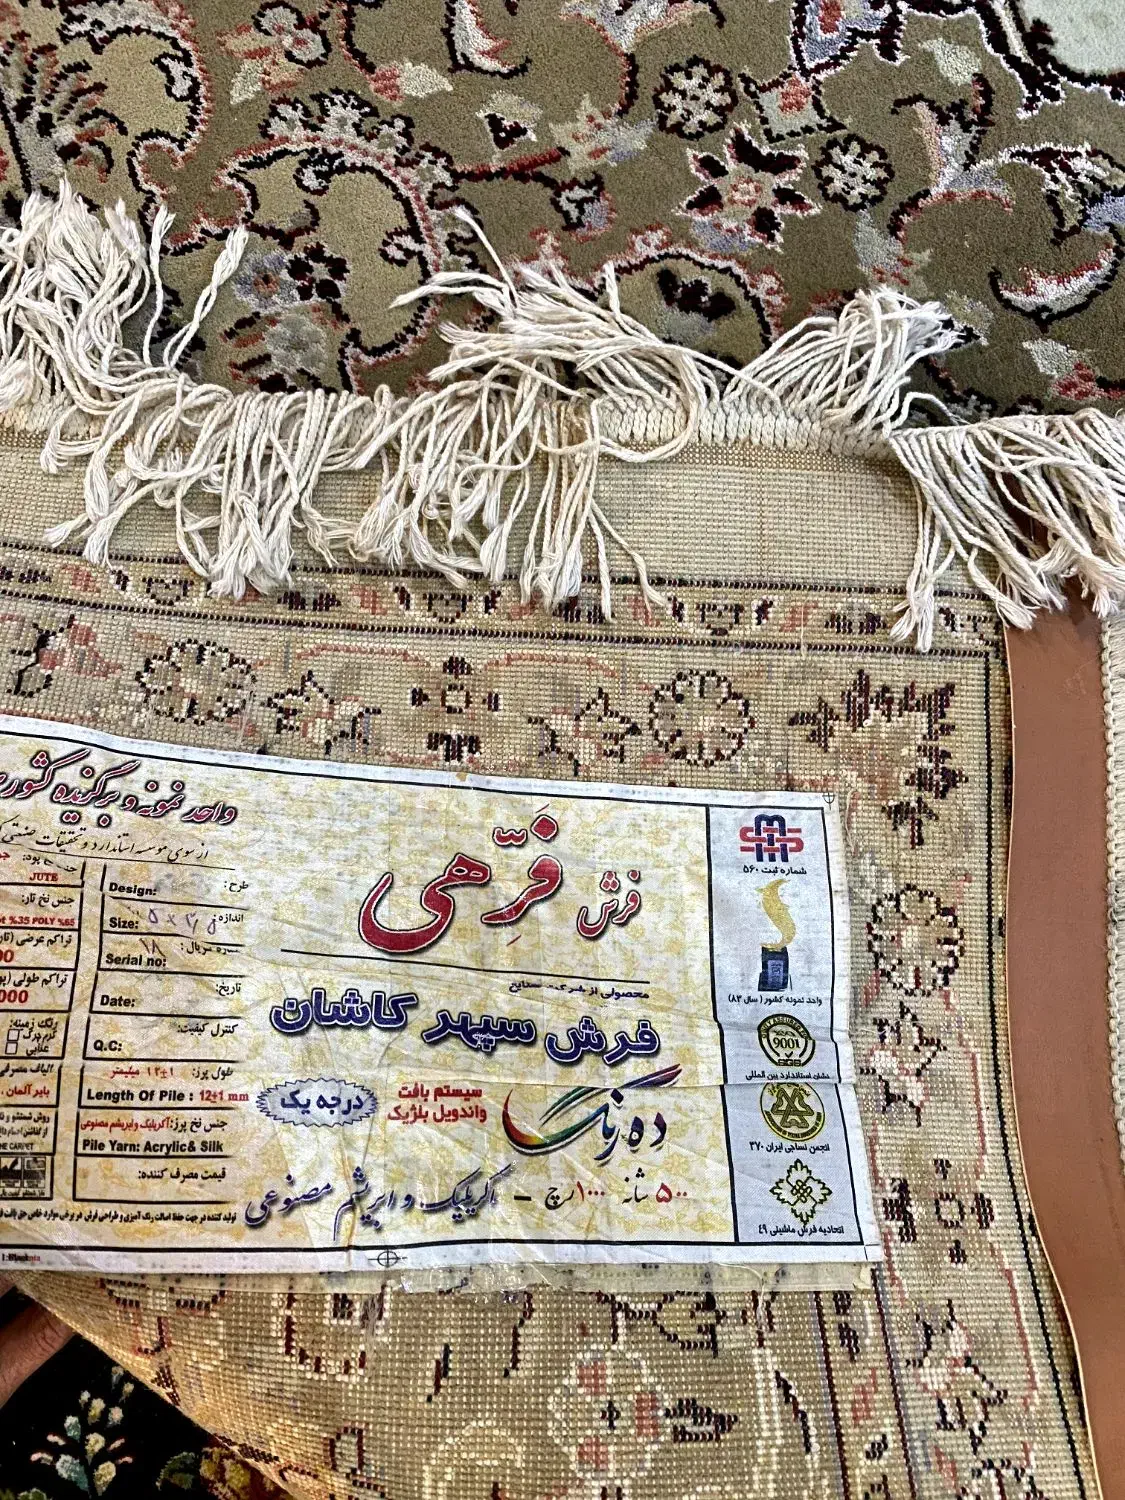 واحد نمونه و برگزیده کشور
از سوی موسسه استاندارد و تحقیقات صنعتی
فرش
فَرّهی
محصولی از شرکت صنایع
فرش سپهر کاشان
ده رنگ
سیستم بافت
واندویل بلژیک
درجه یک
۵۰۰ شانه ۱۰۰۰ رج - اکریلیک و ابریشم مصنوعی
شماره ثبت ۵۶۰
واحد نمونه کشور ( سال ۸۳ )
9001
نشان استاندارد بین المللی
انجمن نساجی ایران ۳۷۰
اتحادیه فرش ماشینی ۴۹
طرح:
Design:
اندازه:
Size:
سریال:
Serial no:
۱۸
تاریخ:
Date:
کنترل کیفیت:
Q.C:
طول پرز: ۱۲±۱ میلیمتر
Length Of Pile : 12±1 mm
جنس نخ پرز: آکریلیک و ابریشم مصنوعی
Pile Yarn: Acrylic& Silk
قیمت مصرف کننده:
پود:
JUTE
جنس نخ تار:
%35 POLY %65
تراکم عرضی
تراکم طولی
000
رنگ زمینه:
الیاف مصرفی
بایر آلمان
THE CARPET
تولید کننده در جهت حفظ اصالت رنگ آمیزی و طراحی فرش در برخی موارد خاص حق